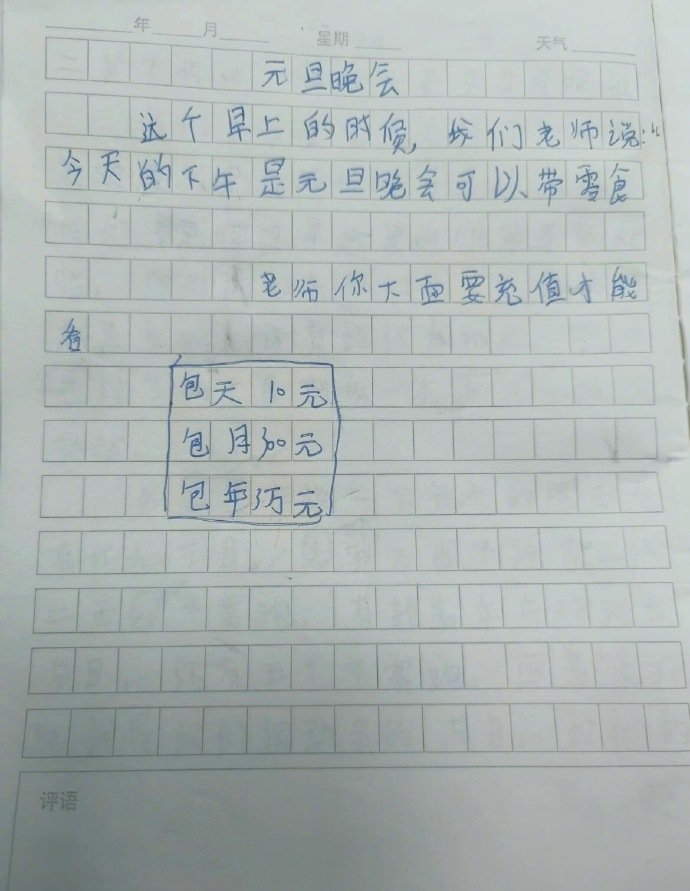 年 月 星期 天气
元旦晚会
这个早上的时候,我们老师说:“
今天的下午是元旦晚会可以带零食
老师你大面要充值才能
看
包天10元
包月300元
包年3万元
评语